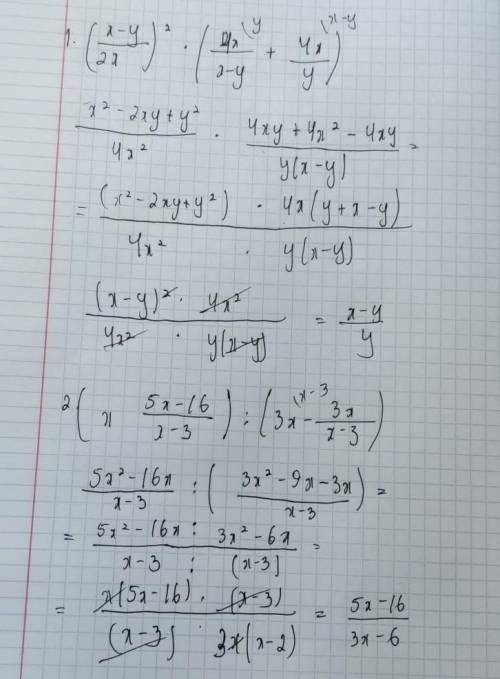 1. ((x-y)/(2x))² · (4x/(x-y) \y + 4x/y \x-y)
(x² - 2xy + y²)/(4x²) · (4xy + 4x² - 4xy)/(y(x-y)) =
= ((x² - 2xy + y²) · 4x(y + x - y))/(4x² · y(x-y))
((x-y)² · 4x²)/(4x² · y(x-y)) = (x-y)/y
2 (x (5x-16)/(x-3)) : (3x \x-3 - 3x/(x-3))
(5x² - 16x)/(x-3) : ((3x² - 9x - 3x)/(x-3)) =
= (5x² - 16x : 3x² - 6x)/(x-3 : (x-3)) =
= (x(5x-16) · (x-3))/((x-3) · 3x(x-2)) = (5x-16)/(3x-6)